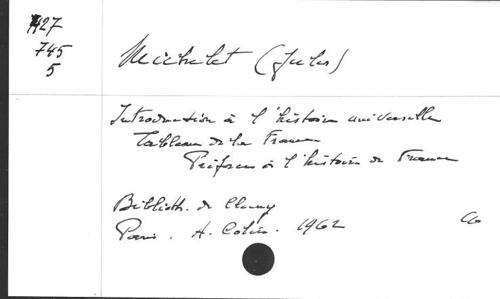 H27
745
5
Michelet (Jules)
Introduction à l'histoire universelle
Tableau de la France
Préfaces à l'histoire de France
Biblioth. de Cluny
Paris. A. Colin. 1962